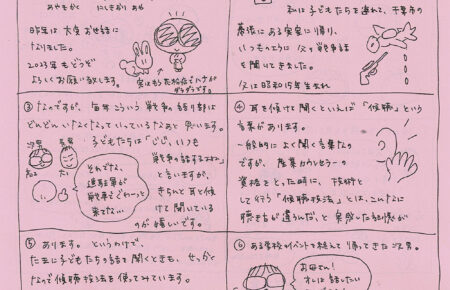 あやもがく にしきおり あや
昨年は大変お世話に
なりました。
2023年もどうぞ
よろしくお願い致します。
実はもう花粉症でハナが
グズグズです。
私は子どもたちを連れて、千葉市の
幕張にある実家に帰り、
いつものように父の戦争話
を聞いてきました。
父は昭和15年生まれ
③ なのですが、毎年こういう戦争の語り部は
どんどんいなくなっていっているなあと思います。
子どもたちは「じじ、いつも
戦争の話するよね」
と言いますが、
きちんと耳を傾
けて聞いている
のが嬉しいです。
次男
長男
それでな、
進駐軍が
戦車でぐわーっと
来てな…
④ 耳を傾けて聞くといえば「傾聴」という
言葉があります。
一般的によく聞く言葉なの
ですが、産業カウンセラーの
資格をとった時に、技術と
して行う「傾聴技法」とは、こんなに
聴き方が違うんだ、と実感した記憶が
⑤ あります。というわけで、
たまに子どもたちの話を聞くときも、せっかく
なので傾聴技法を使ってみています。
⑥ ある学校イベントを終えて帰ってきた次男。
お母さん!
オレは話したい